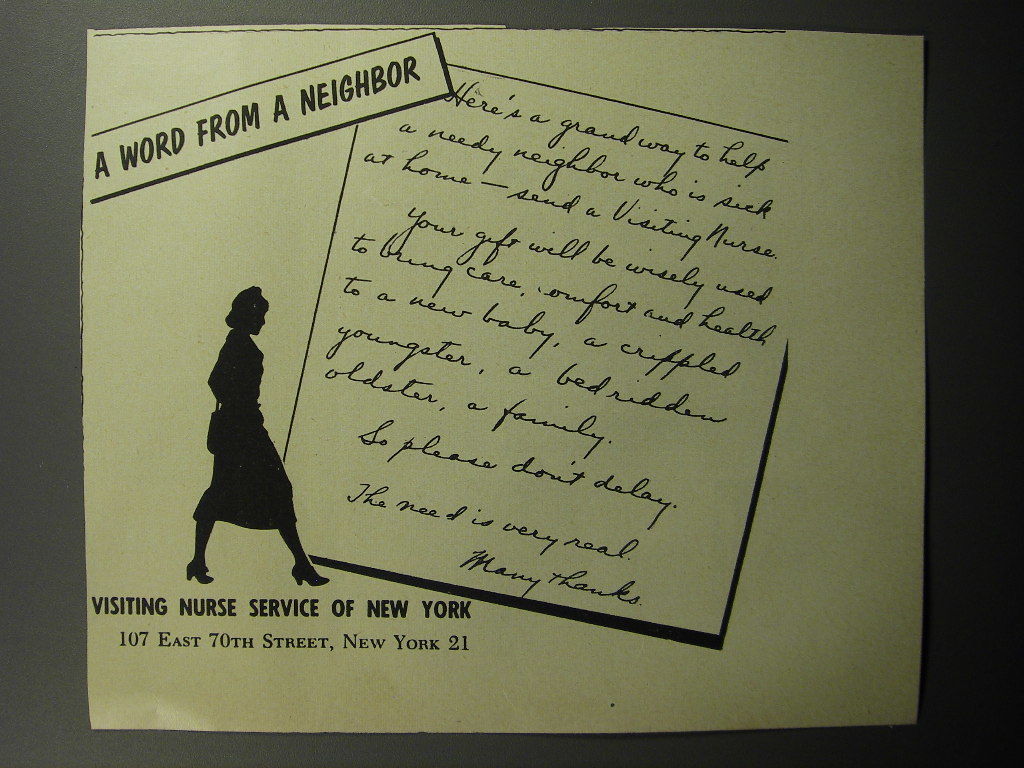 A WORD FROM A NEIGHBOR
Here's a grand way to help
a needy neighbor who is sick
at home — send a Visiting Nurse.
Your gift will be wisely used
to bring care, comfort and health
to a new baby, a crippled
youngster, a bedridden
oldster, a family.
So please don't delay.
The need is very real.
Many thanks.
VISITING NURSE SERVICE OF NEW YORK
107 EAST 70TH STREET, NEW YORK 21